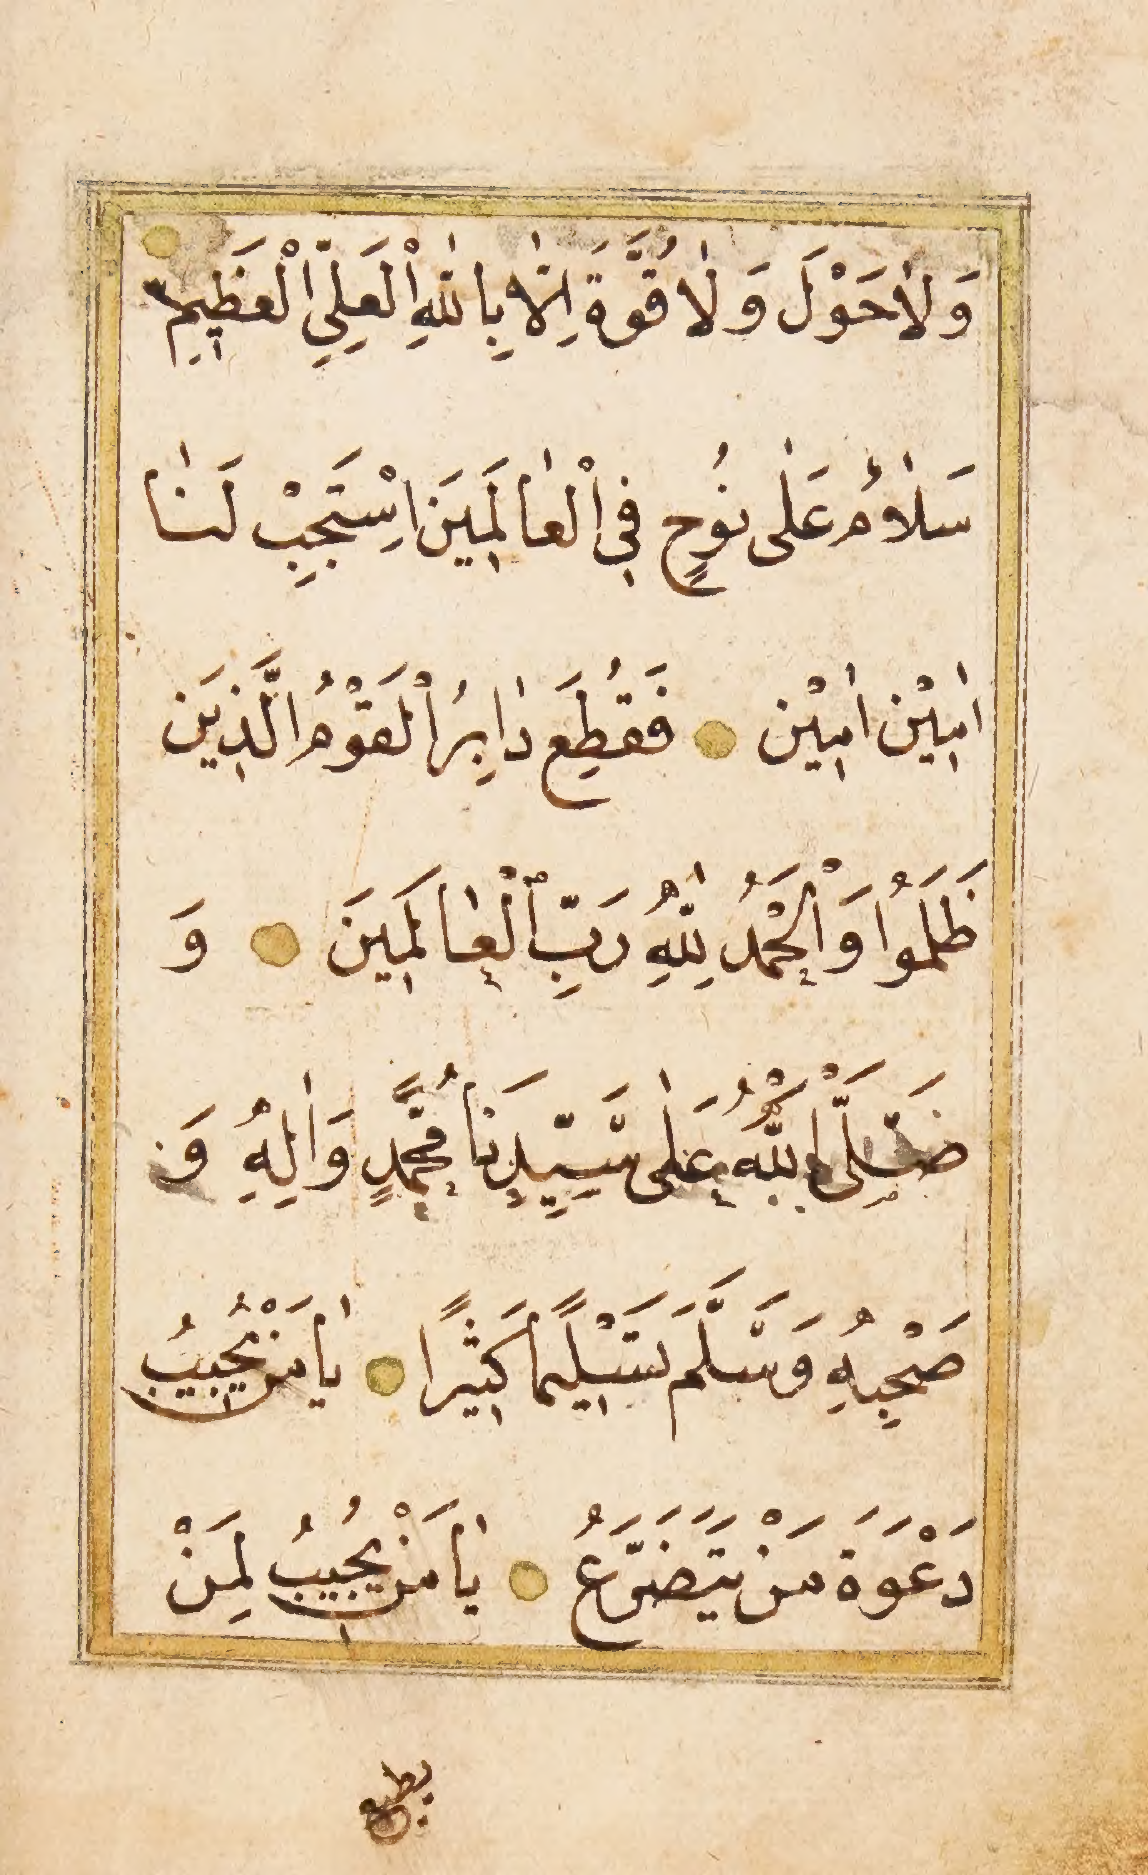 وَلاٰحَوْلَ وَلاٰ قُوَّةَ اِلّاٰ بِاللّٰهِ الْعَلِيِّ الْعَظِيمِ ٣
سَلاٰمٌ عَلٰى نُوحٍ فِى الْعٰالَمِينَ اِسْتَجِبْ لَنٰا
اٰمِيْن اٰمِيْن فَقُطِعَ دٰابِرُ الْقَوْمُ الَّذِينَ
ظَلَمُوْا وَالْحَمْدُ لِلّٰهِ رَبِّ الْعٰالَمِينَ وَ
صَلَّى اللّٰهُ عَلٰى سَيِّدِنَا مُحَمَّدٍ وَاٰلِهِ وَ
صَحْبِهِ وَسَلَّمَ تَسْلِيمًا كَثِيرًا يٰا مَنْ يُجِيبُ
دَعْوَةَ مَنْ يَتَضَرَّعُ يٰا مَنْ يُجِيبُ لِمَنْ
يطيع